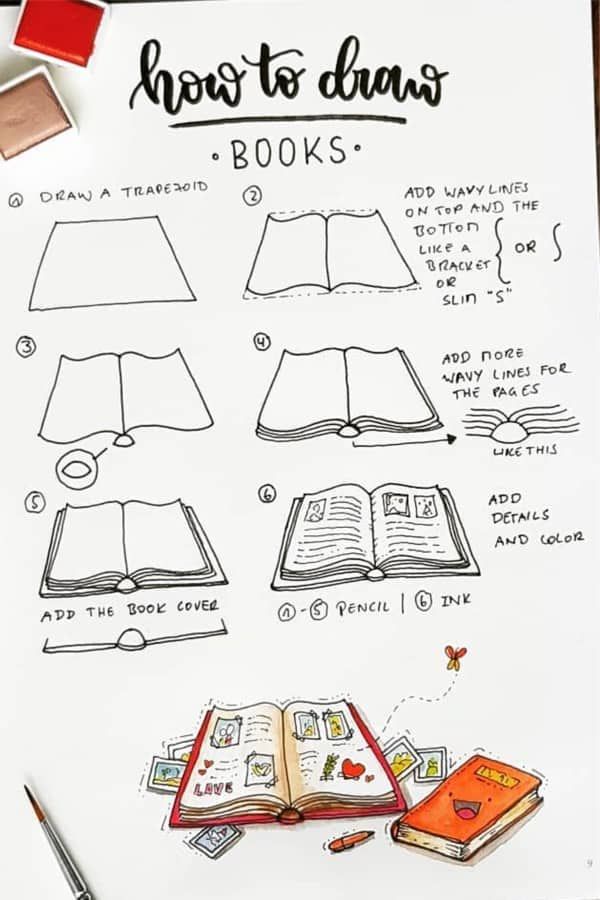 how to draw
• BOOKS •
① DRAW A TRAPEZOID
②
ADD WAVY LINES
ON TOP AND THE
BOTTON
LIKE A
BRACKET
OR
SLIM "S"
{ OR S
③
④
ADD MORE
WAVY LINES FOR
THE PAGES
LIKE THIS
⑤
ADD THE BOOK COVER
⑥
ADD
DETAILS
AND COLOR
①-⑤ PENCIL | ⑥ INK
LOVE
9